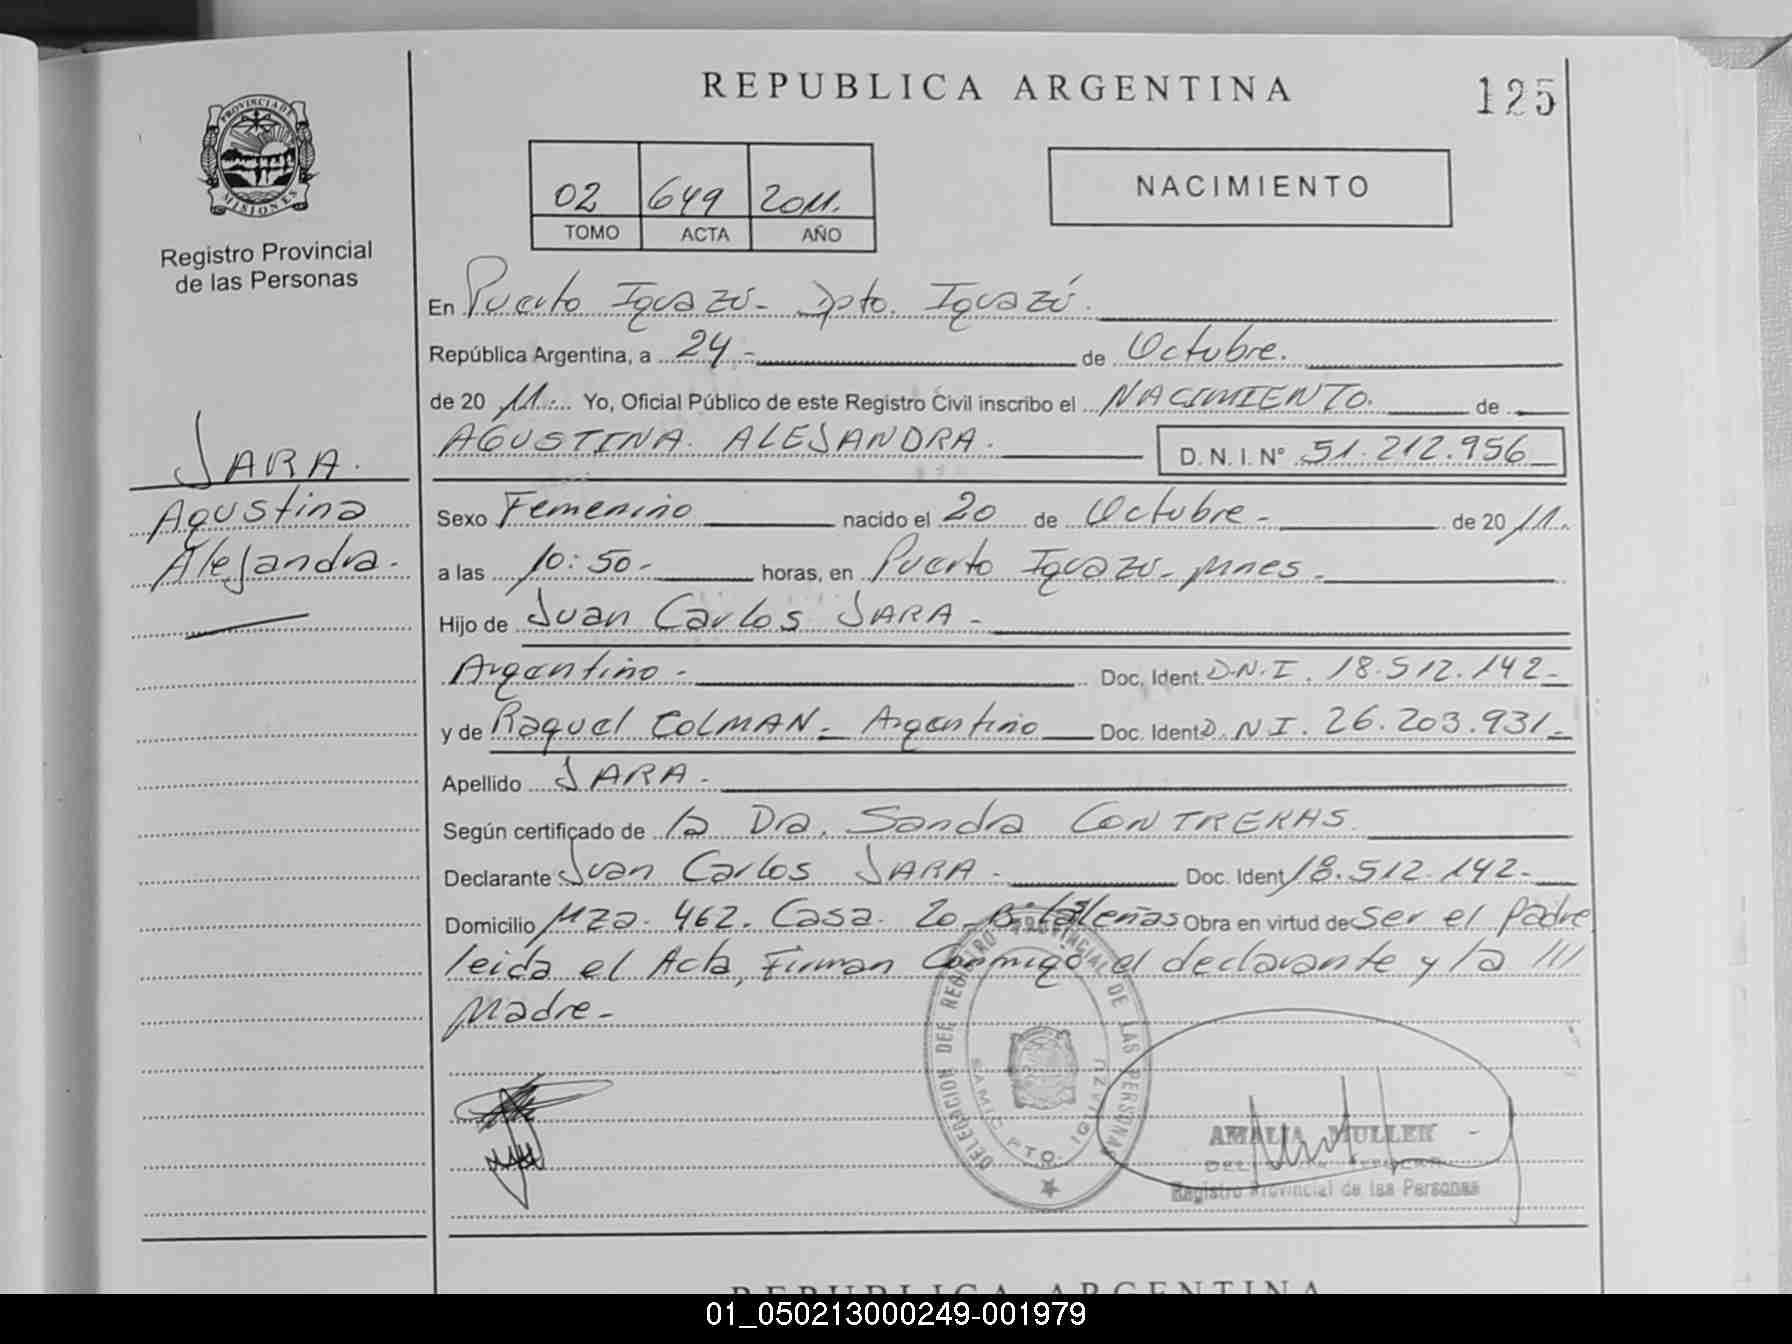 REPUBLICA ARGENTINA
125
PROVINCIA DE
MISIONES
Registro Provincial
de las Personas
02 649 2011.
TOMO ACTA AÑO
NACIMIENTO
En Puerto Iguazú- Dpto. Iguazú.
República Argentina, a 24- de Octubre.
de 20 11.- Yo, Oficial Público de este Registro Civil inscribo el NACIMIENTO. de
AGUSTINA. ALEJANDRA. D. N. I. N° 51.212.956
JARA.
Agustina
Alejandra.-
Sexo Femenino nacido el 20 de Octubre- de 20 11.
a las 10:50.- horas, en Puerto Iguazú- Mnes-
Hijo de Juan Carlos JARA-
Argentino- Doc. Ident. D.N.I. 18.512.142-
y de Raquel COLMAN- Argentino Doc. Ident D.N.I. 26.203.931-
Apellido JARA-
Según certificado de la Dra. Sandra CONTRERAS.
Declarante Juan Carlos JARA- Doc. Ident 18.512.142-
Domicilio Mza. 462. Casa. 20- Obra en virtud de ser el padre
leida el Acta, Firman Conmigo el declarante y la ///
Madre-
DELEGACION DEL REGISTRO PROVINCIAL DE LAS PERSONAS
PTO. IGUAZU
AMALIA MULLER
Registro Provincial de las Personas
REPUBLICA ARGENTINA
01_050213000249-001979